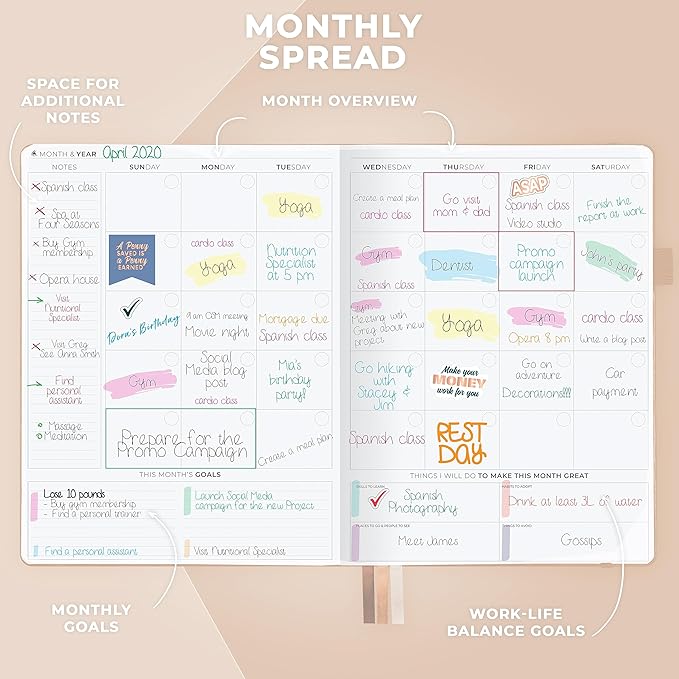 MONTHLY
SPREAD
SPACE FOR
ADDITIONAL
NOTES
MONTH OVERVIEW
MONTH & YEAR April 2020
NOTES
SUNDAY
MONDAY
TUESDAY
WEDNESDAY
THURSDAY
FRIDAY
SATURDAY
Spanish class
Spa at
Four Seasons
Buy Gym
membership
Opera house
Visit
Nutritional
Specialist
Visit Greg
See Anna Smith
Find
personal
assistant
Massage
Meditation
Yoga
Create a meal plan
cardio class
Go visit
mom & dad
ASAP
Spanish class
Video studio
Finish the
report at work
A Penny
SAVED IS
a Penny
EARNED
cardio class
Yoga
Nutrition
Specialist
at 5 pm
Gym
Spanish class
Dentist
Promo
campaign
launch
John's party
Dora's Birthday
9 am COM meeting
Movie night
Mortgage due
Spanish class
Gym
Meeting with
Greg about new
project
Yoga
Gym
Opera 8 pm
cardio class
Write a blog post
Gym
Social
Media blog
post
cardio class
Mia's
birthday
party!
Go hiking
with
Stacey &
Jim
Make your
MONEY
work for you
Go on
adventure
Decorations!!!
Car
payment
Prepare for the
Promo Campaign
Create a meal plan
Spanish class
REST
DAY
THIS MONTH'S GOALS
Lose 10 pounds
- Buy gym membership
- Find a personal trainer
Launch Social Media
campaign for the new Project
Find a personal assistant
Visit Nutritional Specialist
THINGS I WILL DO TO MAKE THIS MONTH GREAT
SKILLS TO LEARN
Spanish
Photography
HABITS TO ADOPT
Drink at least 3L of water
PLACES TO GO & PEOPLE TO SEE
Meet James
THINGS TO AVOID
Gossips
MONTHLY
GOALS
WORK-LIFE
BALANCE GOALS